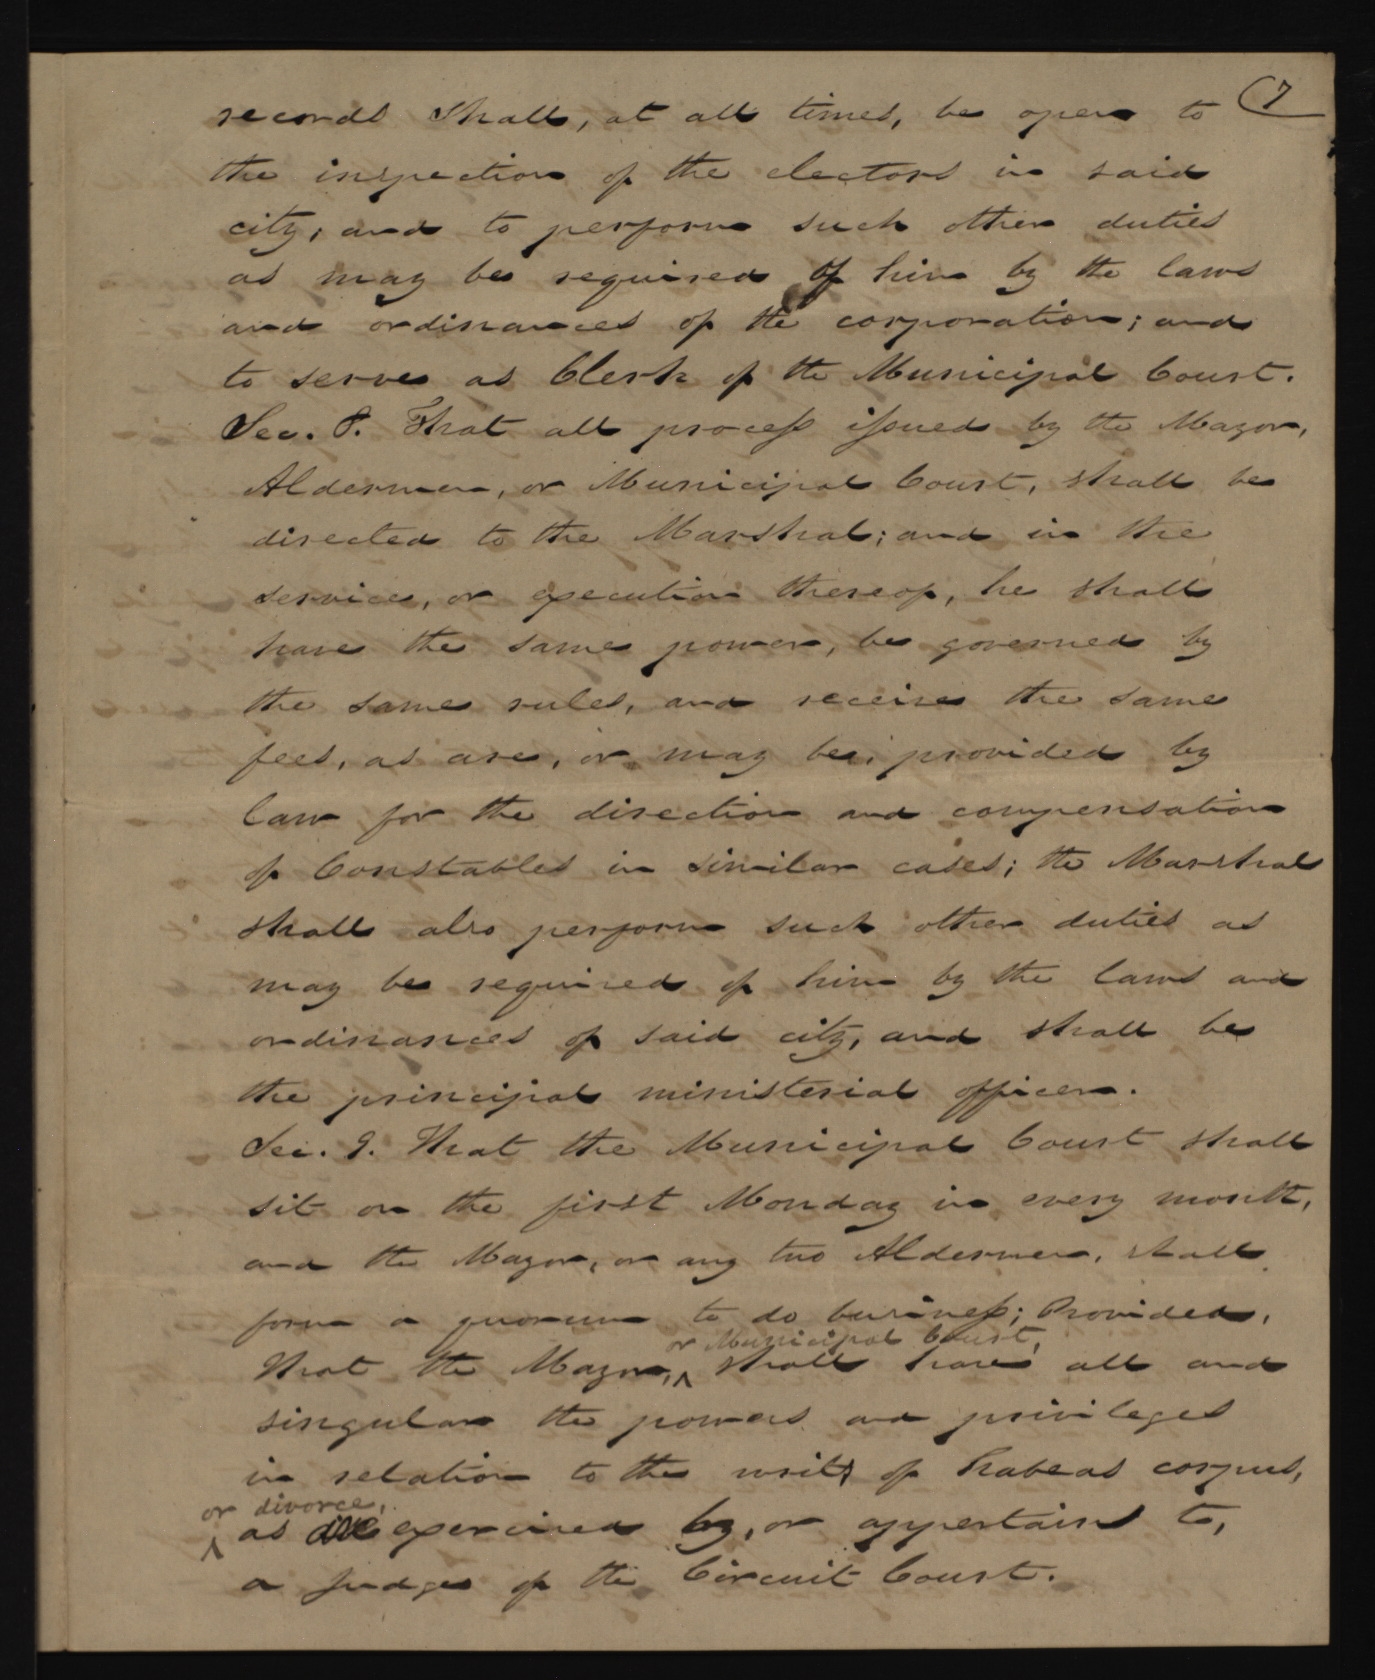 7
records shall, at all times, be open to
the inspection of the electors in said
city, and to perform such other duties
as may be required of him by the laws
and ordinances of the corporation; and
to serve as Clerk of the Municipal Court.
Sec. 8. That all process issued by the Mayor,
Aldermen, or Municipal Court, shall be
directed to the Marshal; and in the
service, or execution thereof, he shall
have the same power, be governed by
the same rules, and receive the same
fees, as are, or may be, provided by
law for the direction and compensation
of Constables in similar cases; the Marshal
shall also perform such other duties as
may be required of him by the laws and
ordinances of said city, and shall be
the principal ministerial officer.
Sec. 9. That the Municipal Court shall
sit on the first Monday in every month,
and the Mayor, or any two Aldermen, shall
form a quorum to do business; Provided,
or Municipal Court,
That the Mayor, ^ shall have all and
singular the powers and privileges
in relation to the writs of habeas corpus,
or divorce,
^ as are exercised by, or appertains to,
a judge of the Circuit Court.